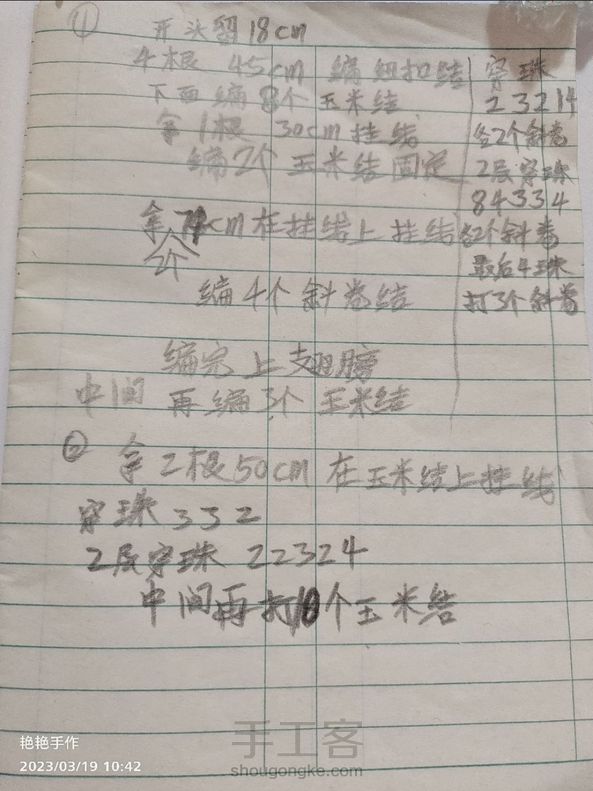 ①
开头留18cm
4根 45cm 编纽扣结
下面编8个玉米结
拿1根 30cm挂线
编2个玉米结固定
拿 cm在挂线上挂线
2个
编4个斜卷结
编完上翅膀
中间 再编3个玉米结
穿珠
23214
各2个斜卷
2层穿珠
84334
各2个斜卷
最后4珠
打3个斜卷
② 拿2根50cm在玉米结上挂线
穿珠332
2层穿珠 22324
中间再打10个玉米结
艳艳手作
2023/03/19 10:42
手工客
shougongke.com